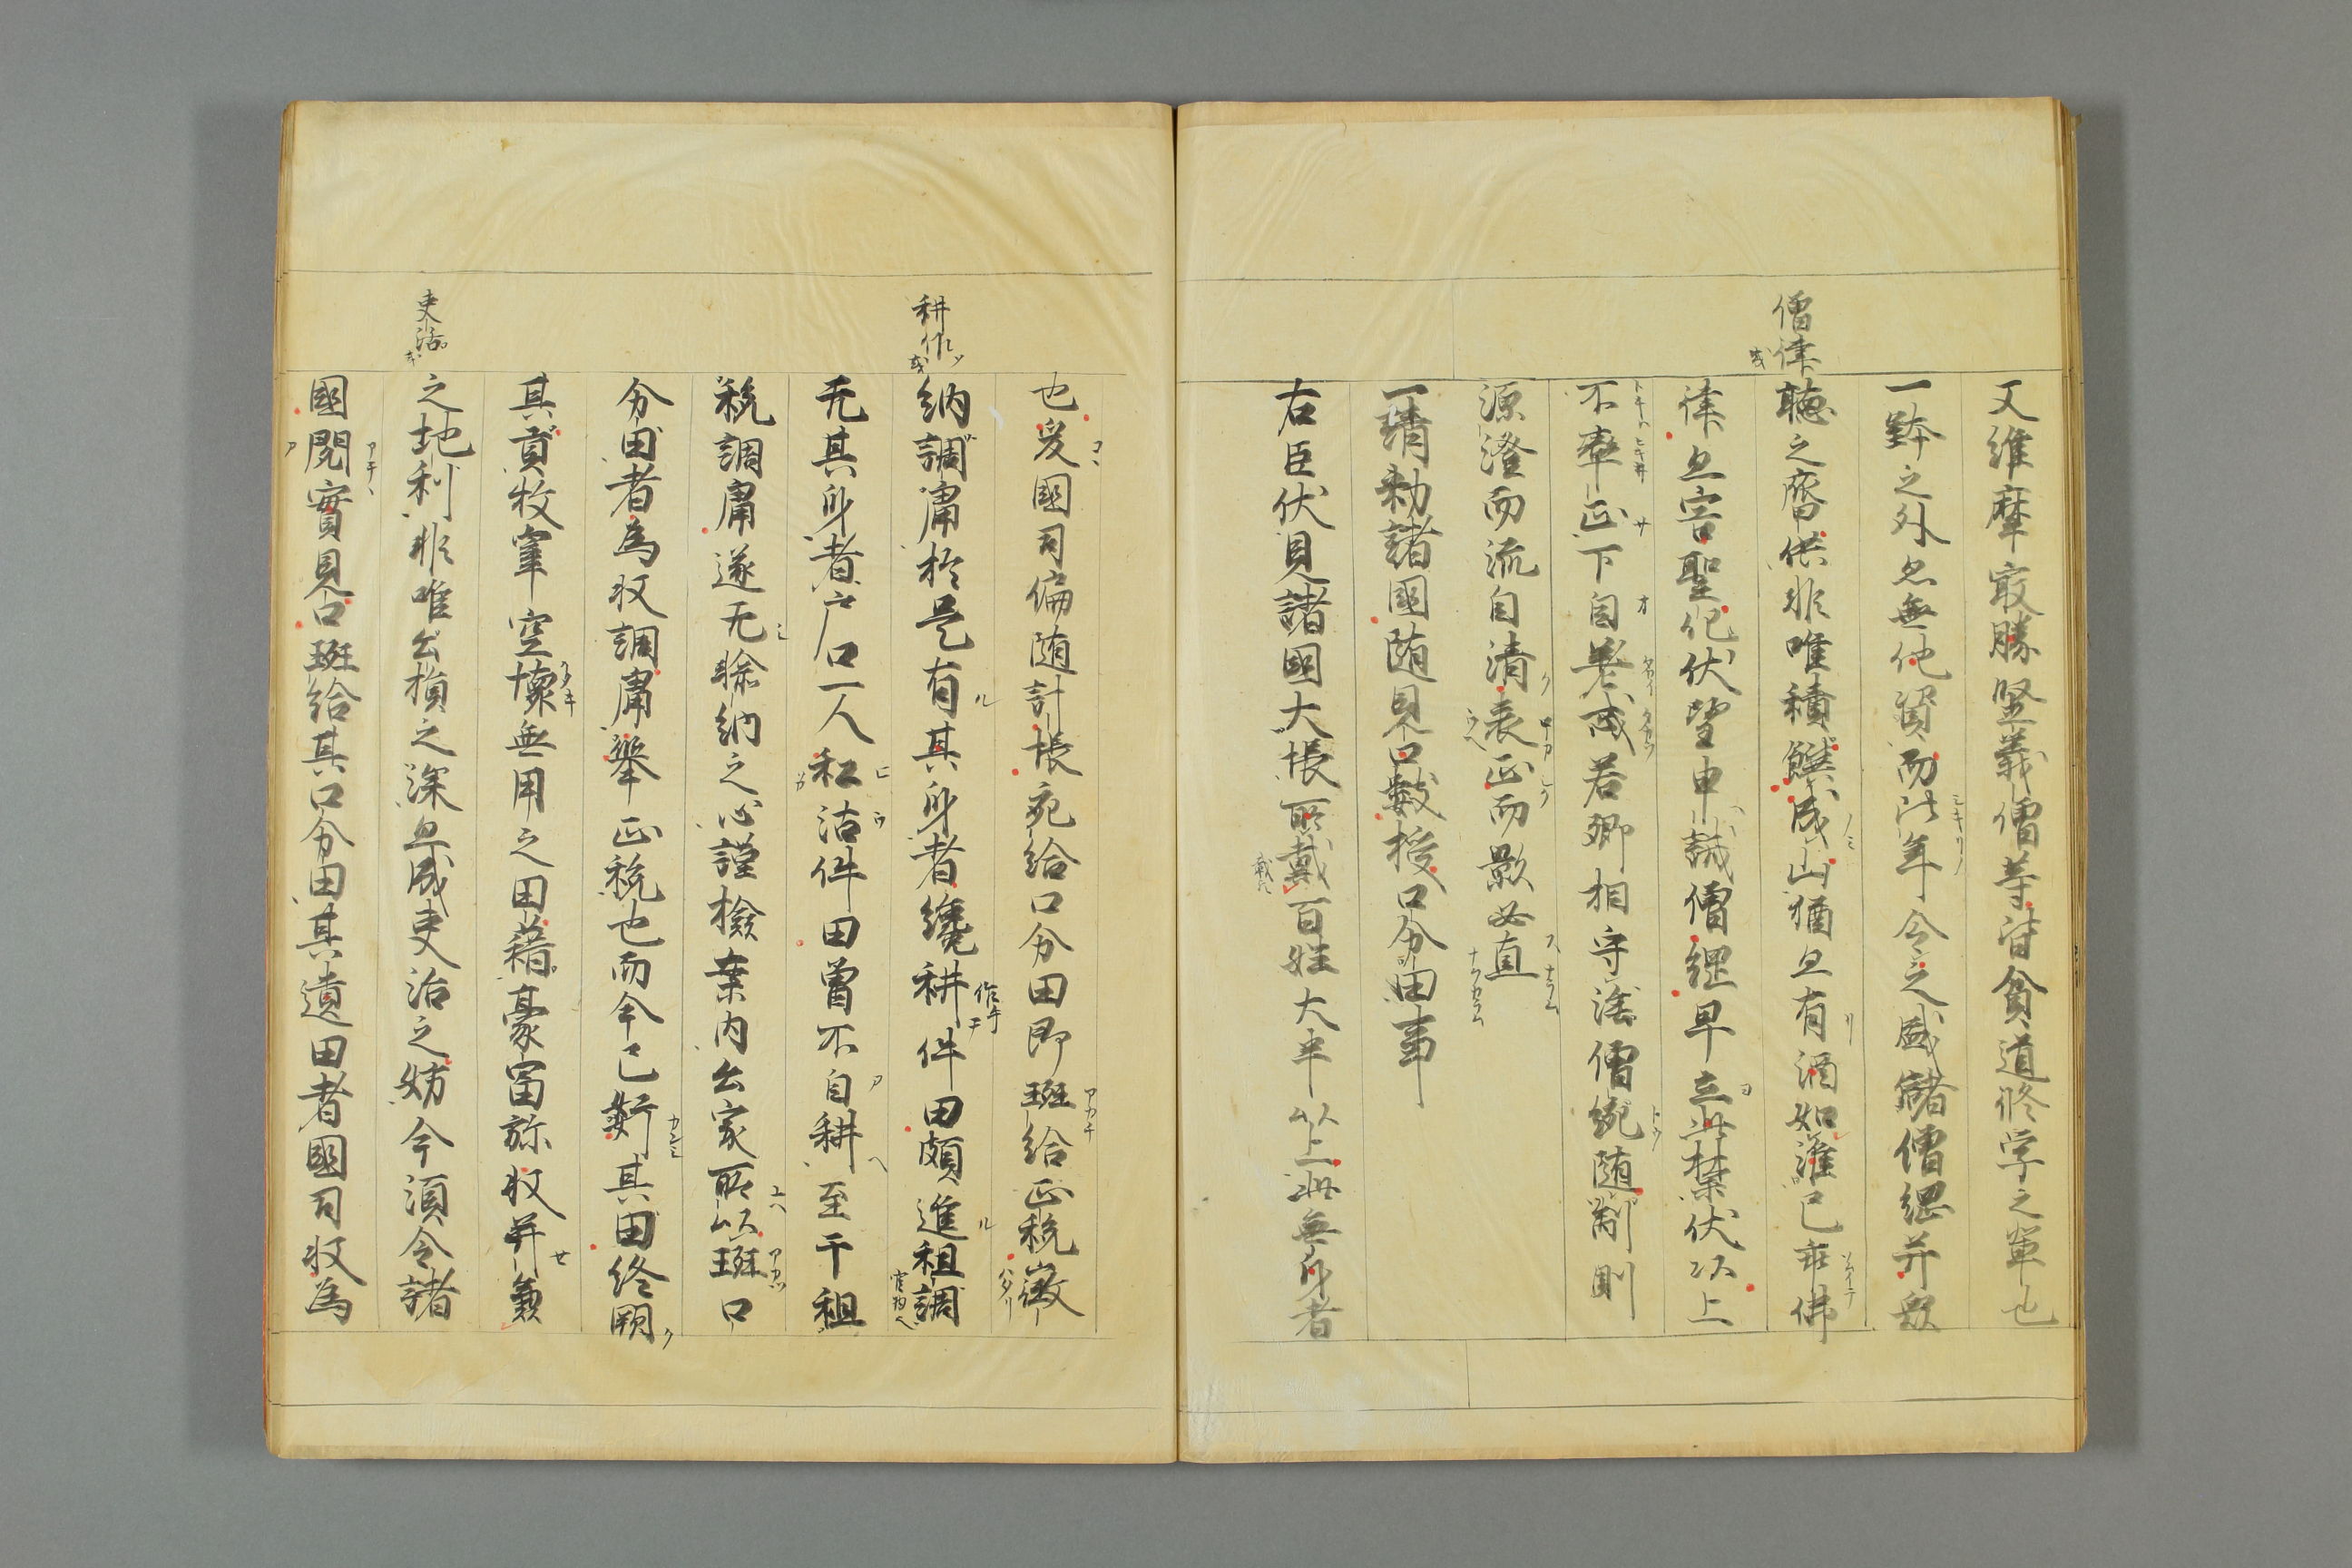 又維摩最勝竪義僧等皆貧道修学之輩也
一鉢之外忽無他資而比年令之盛儲僧綱并
聴之齋供非唯積饌成山猶且有酒如淮已乖佛
律且害聖化伏望申誡僧綱早立此禁伏以上
不率正下自差或若卿相守法僧綱随制則
源澄而流自清表正而影必直
一請勅諸國随見口數授口分田事
右臣伏見諸國大帳所戴百姓大半以上此無身者
也爰國司偏随計帳宛給口分田即班給正税徴
納調庸於是有其身者纔耕件田頗進租調
无其身者戸口一人私沽件田曽不自耕至于租
税調庸遂无輸納之心謹檢案内公家所以班口
分田者為収調庸舉正税也而今已姧其田終闕
其貢牧宰空懐無用之田藉豪富弥収并兼
之地利非唯公損之深且成吏治之妨今須令諸
國閲實見口班給其口分田其遺田者國司収為
僧律
或
耕作
或
吏治